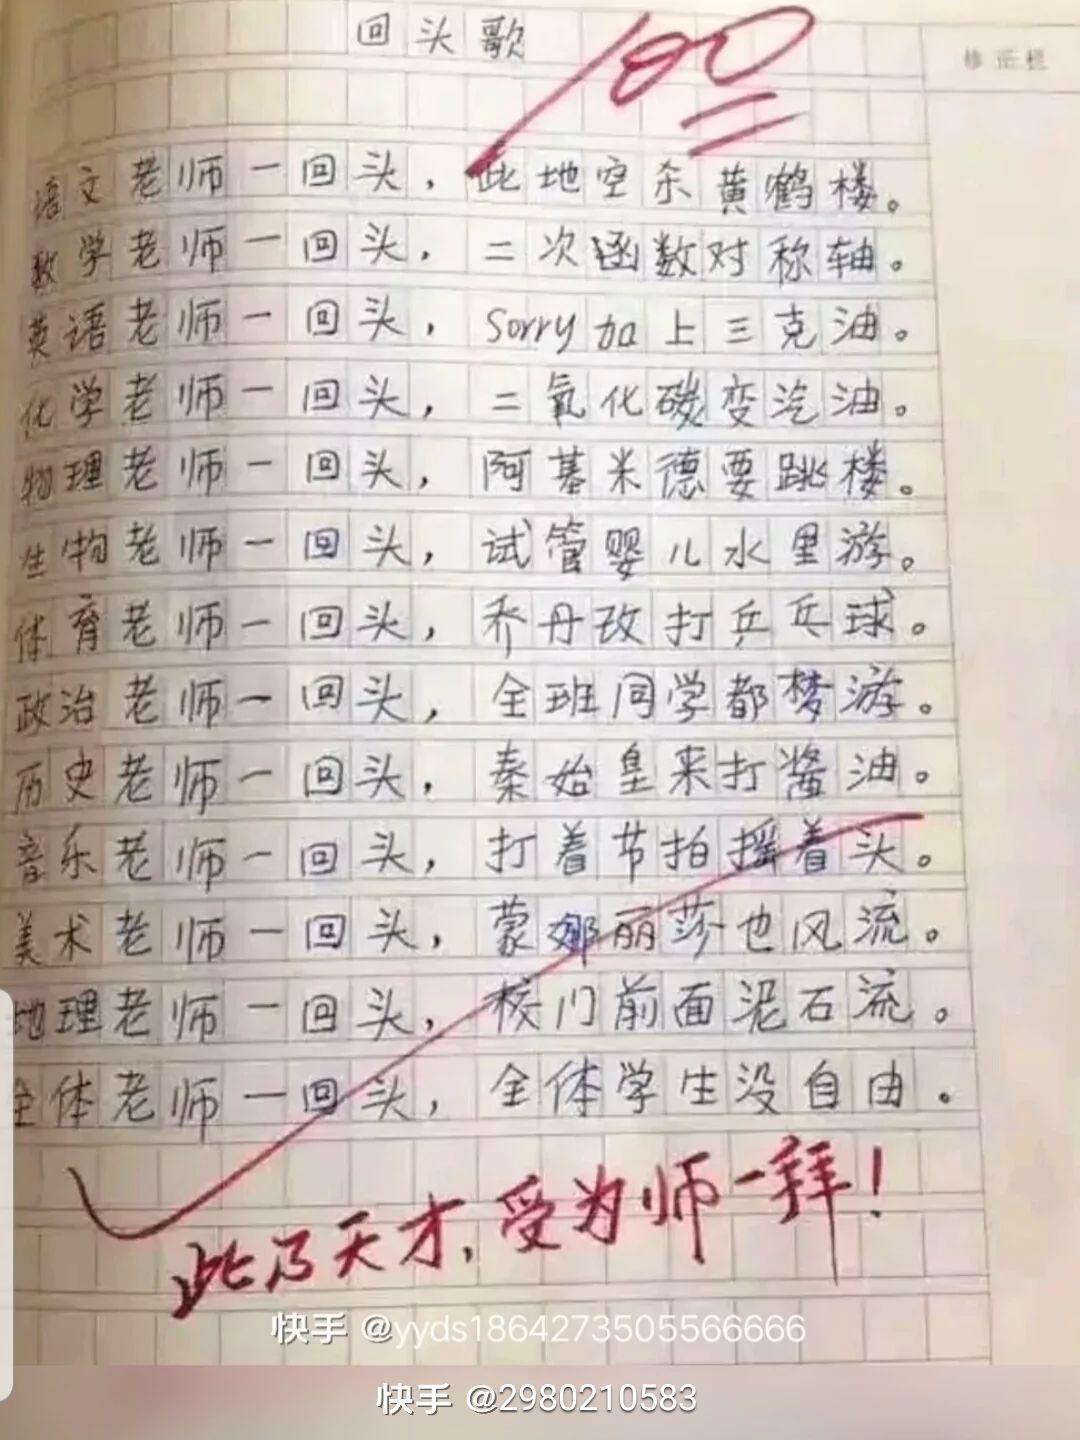 回头歌
100
修正栏
语文老师一回头，此地空余黄鹤楼。
数学老师一回头，二次函数对称轴。
英语老师一回头，Sorry加上三克油。
化学老师一回头，二氧化碳变汽油。
物理老师一回头，阿基米德要跳楼。
生物老师一回头，试管婴儿水里游。
体育老师一回头，乔丹改打乒乓球。
政治老师一回头，全班同学都梦游。
历史老师一回头，秦始皇来打酱油。
音乐老师一回头，打着节拍摇着头。
美术老师一回头，蒙娜丽莎也风流。
地理老师一回头，校门前面泥石流。
全体老师一回头，全体学生没自由。
此乃天才，受为师一拜！
快手 @yyds1864273505566666
快手 @2980210583